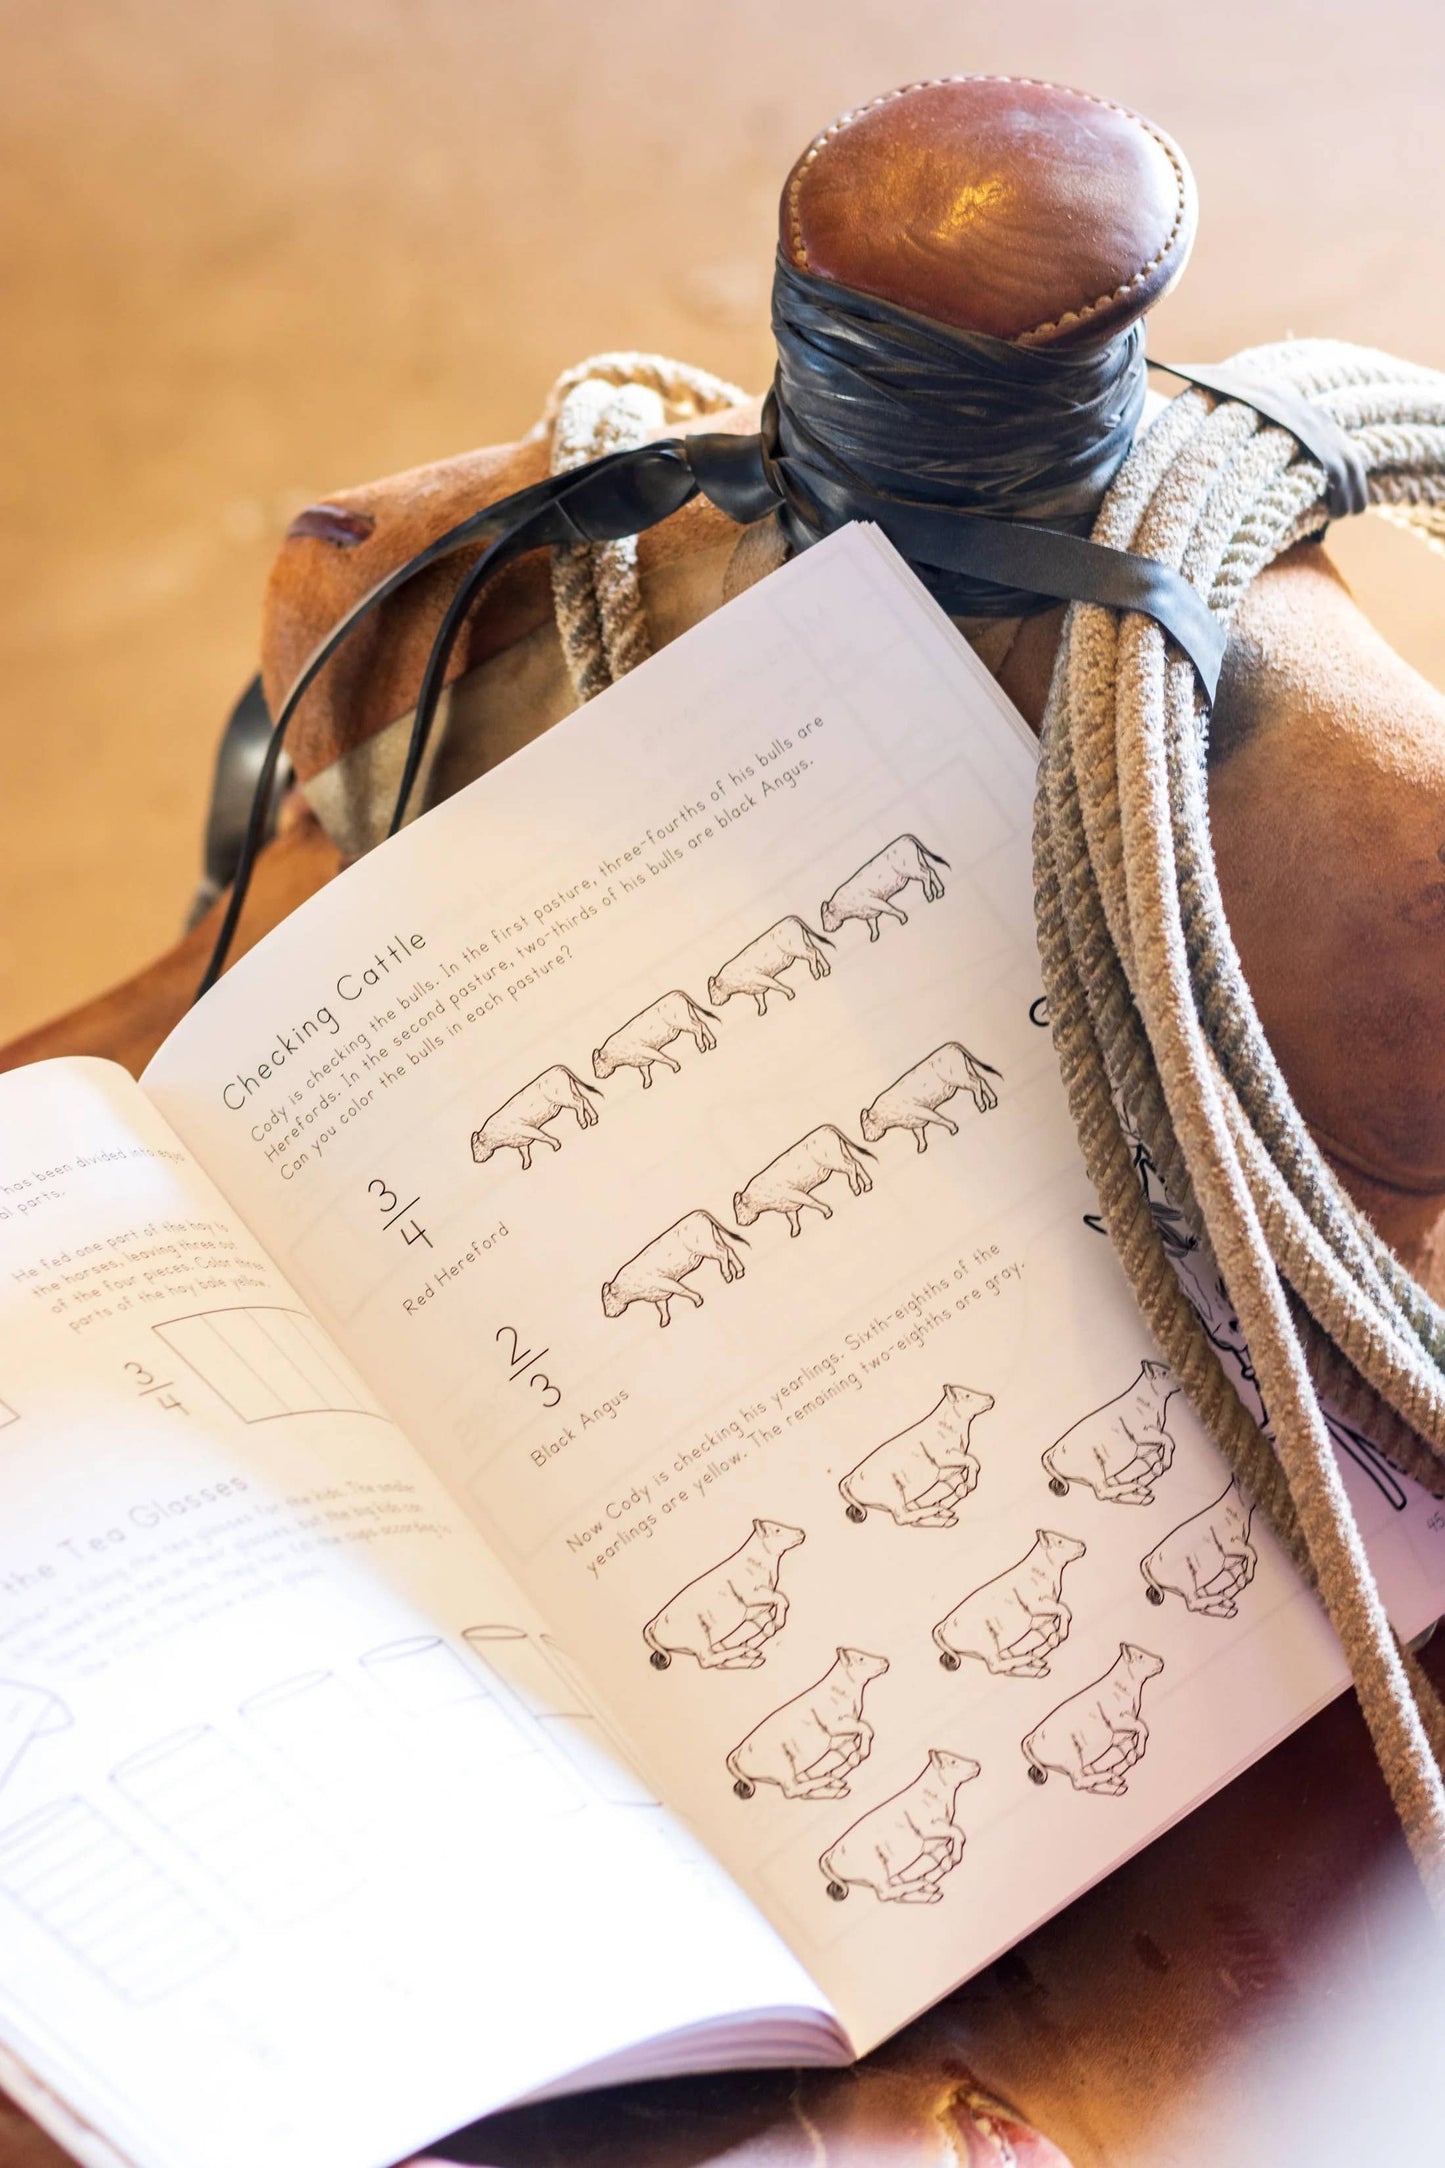 has been divided into equal
al parts.
He fed one part of the hay to
the horses, leaving three out
of the four pieces. Color three
parts of the hay bale yellow.
3
4
the Tea Glasses
the tea glasses for the kids. The smaller
Checking Cattle
Cody is checking the bulls. In the first pasture, three-fourths of his bulls are
Herefords. In the second pasture, two-thirds of his bulls are black Angus.
Can you color the bulls in each pasture?
3
4
Red Hereford
2
3
Black Angus
Now Cody is checking his yearlings. Sixth-eighths of the
yearlings are yellow. The remaining two-eighths are gray.
45